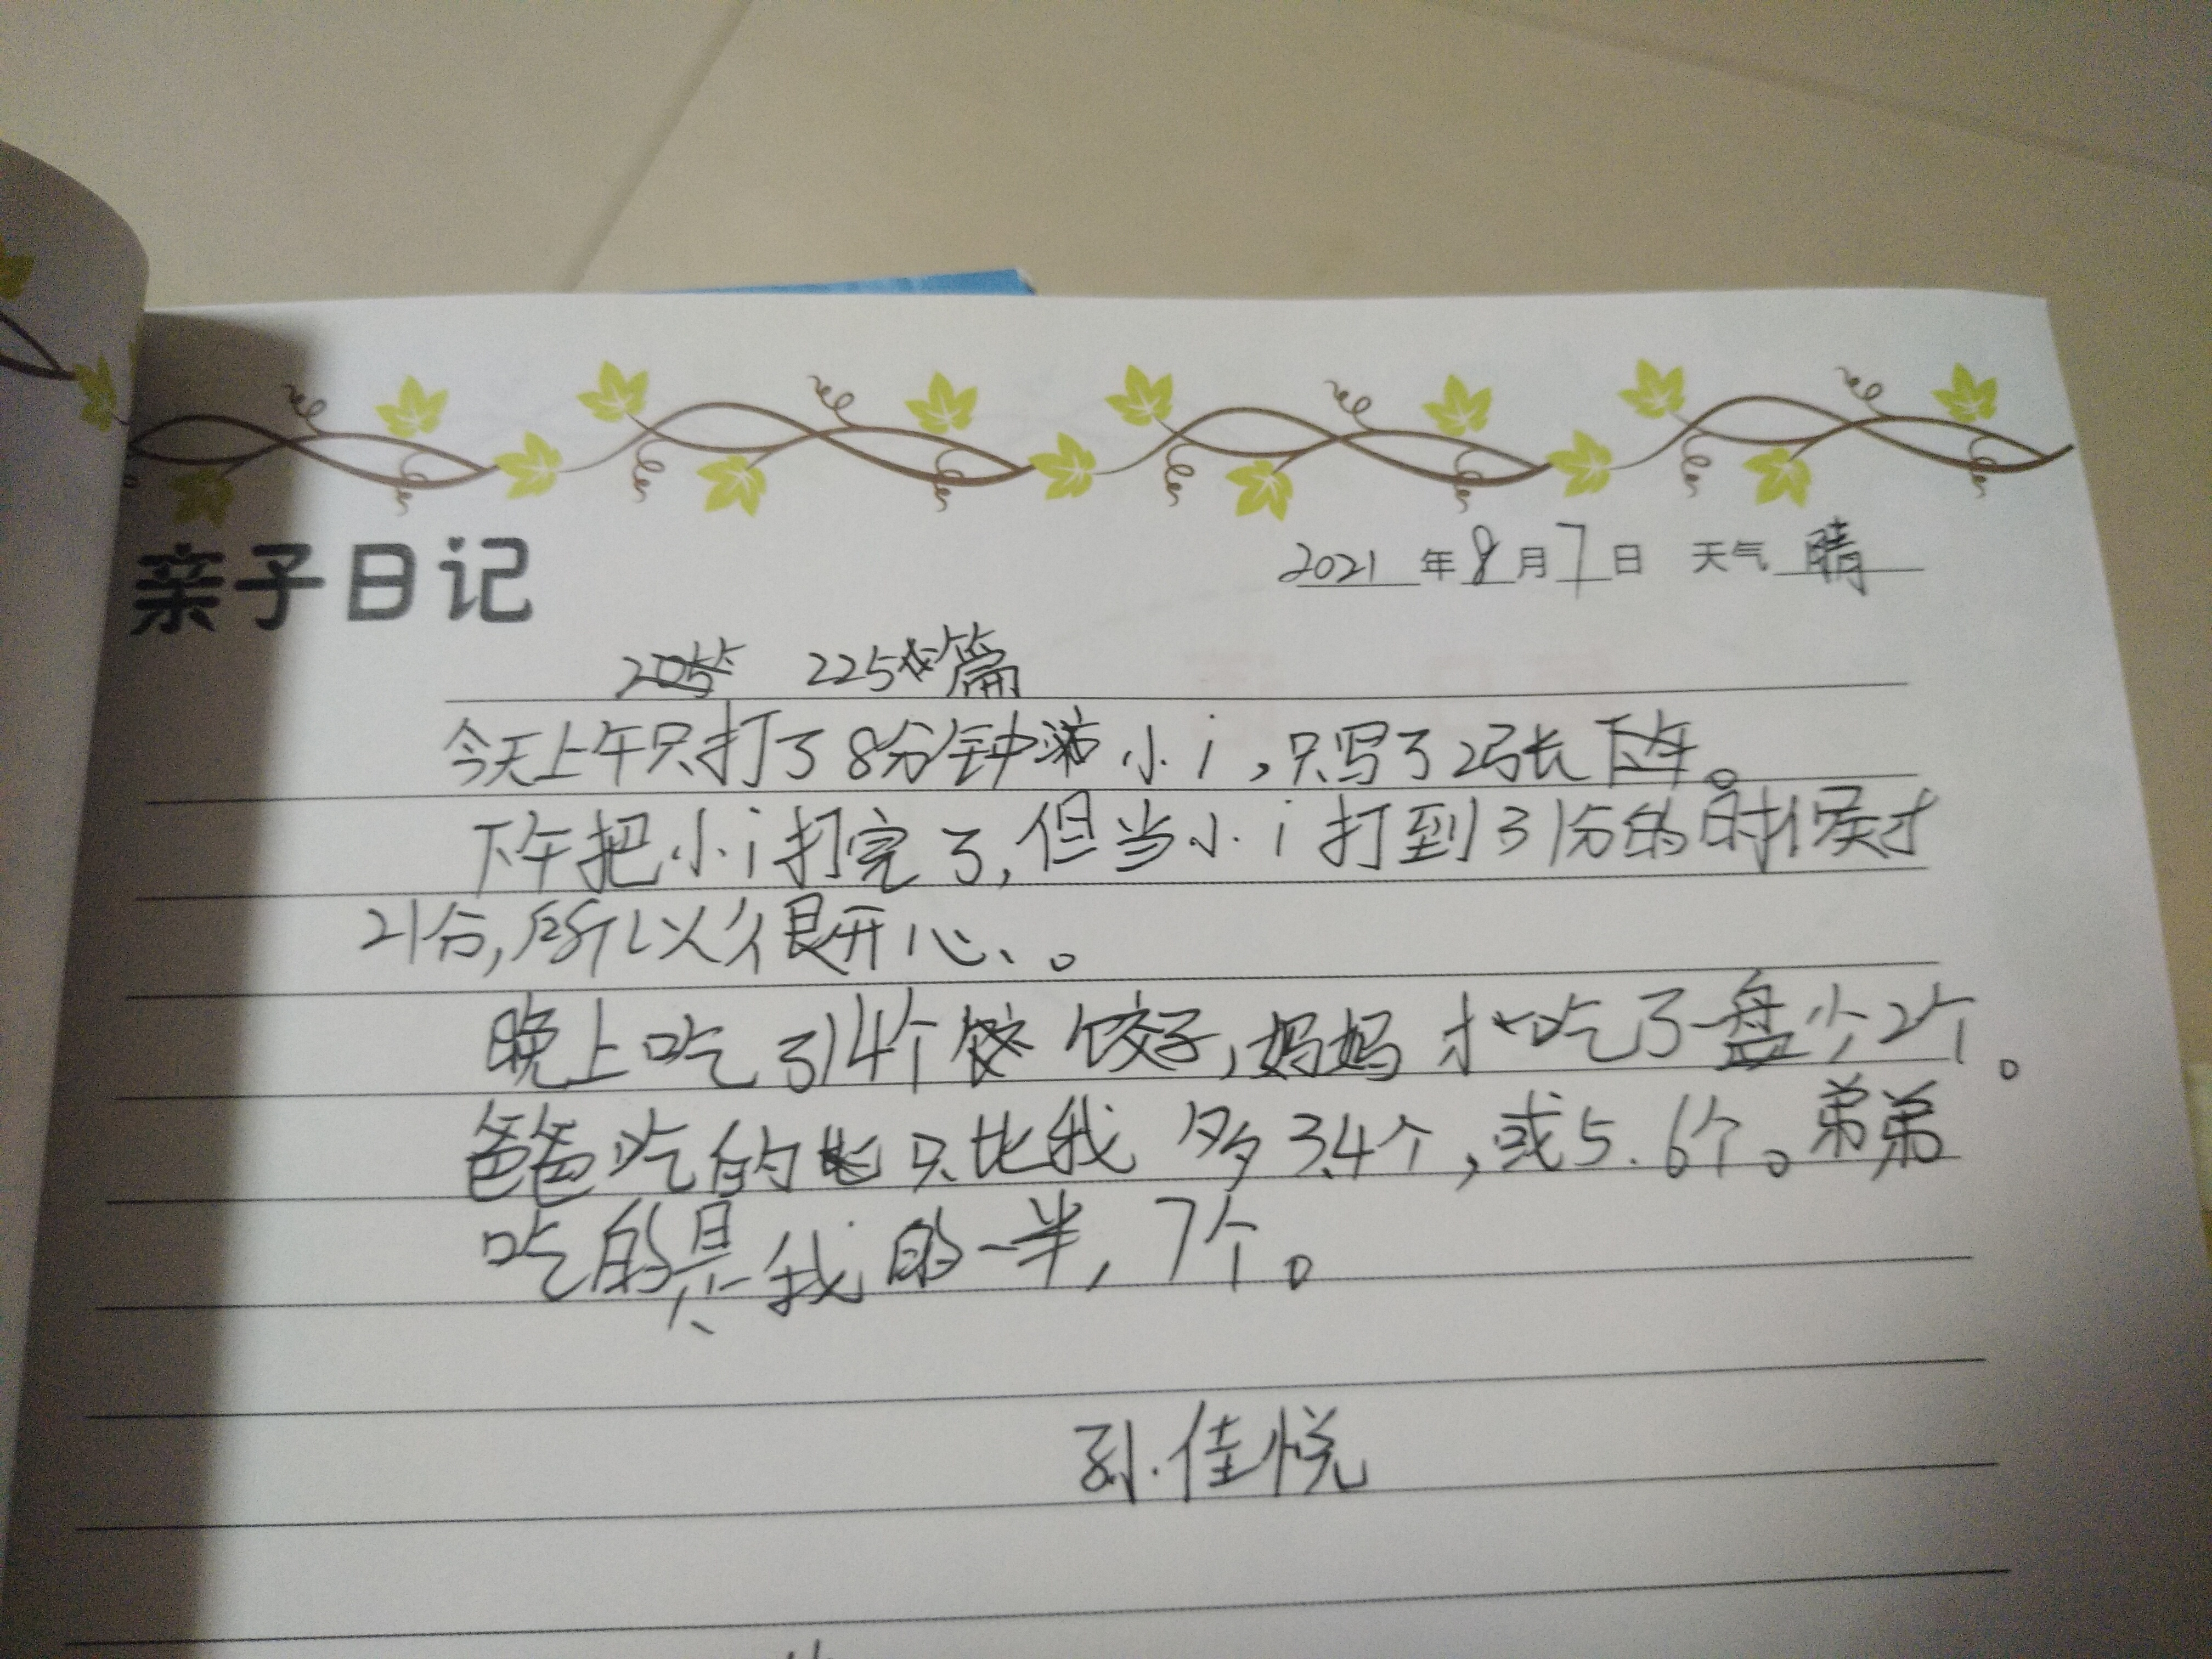 亲子日记
2021年8月7日 天气 晴
225篇
今天上午只打了8分钟 小i,只写了2张。
下午把小i打完了,但当小i打到31分的时候才
21分,所以很开心。
晚上吃了14个饺子,妈妈才吃了一盘少2个。
爸爸吃的只比我多3.4个,或5.6个。弟弟
吃的是我的一半,7个。
孙佳悦